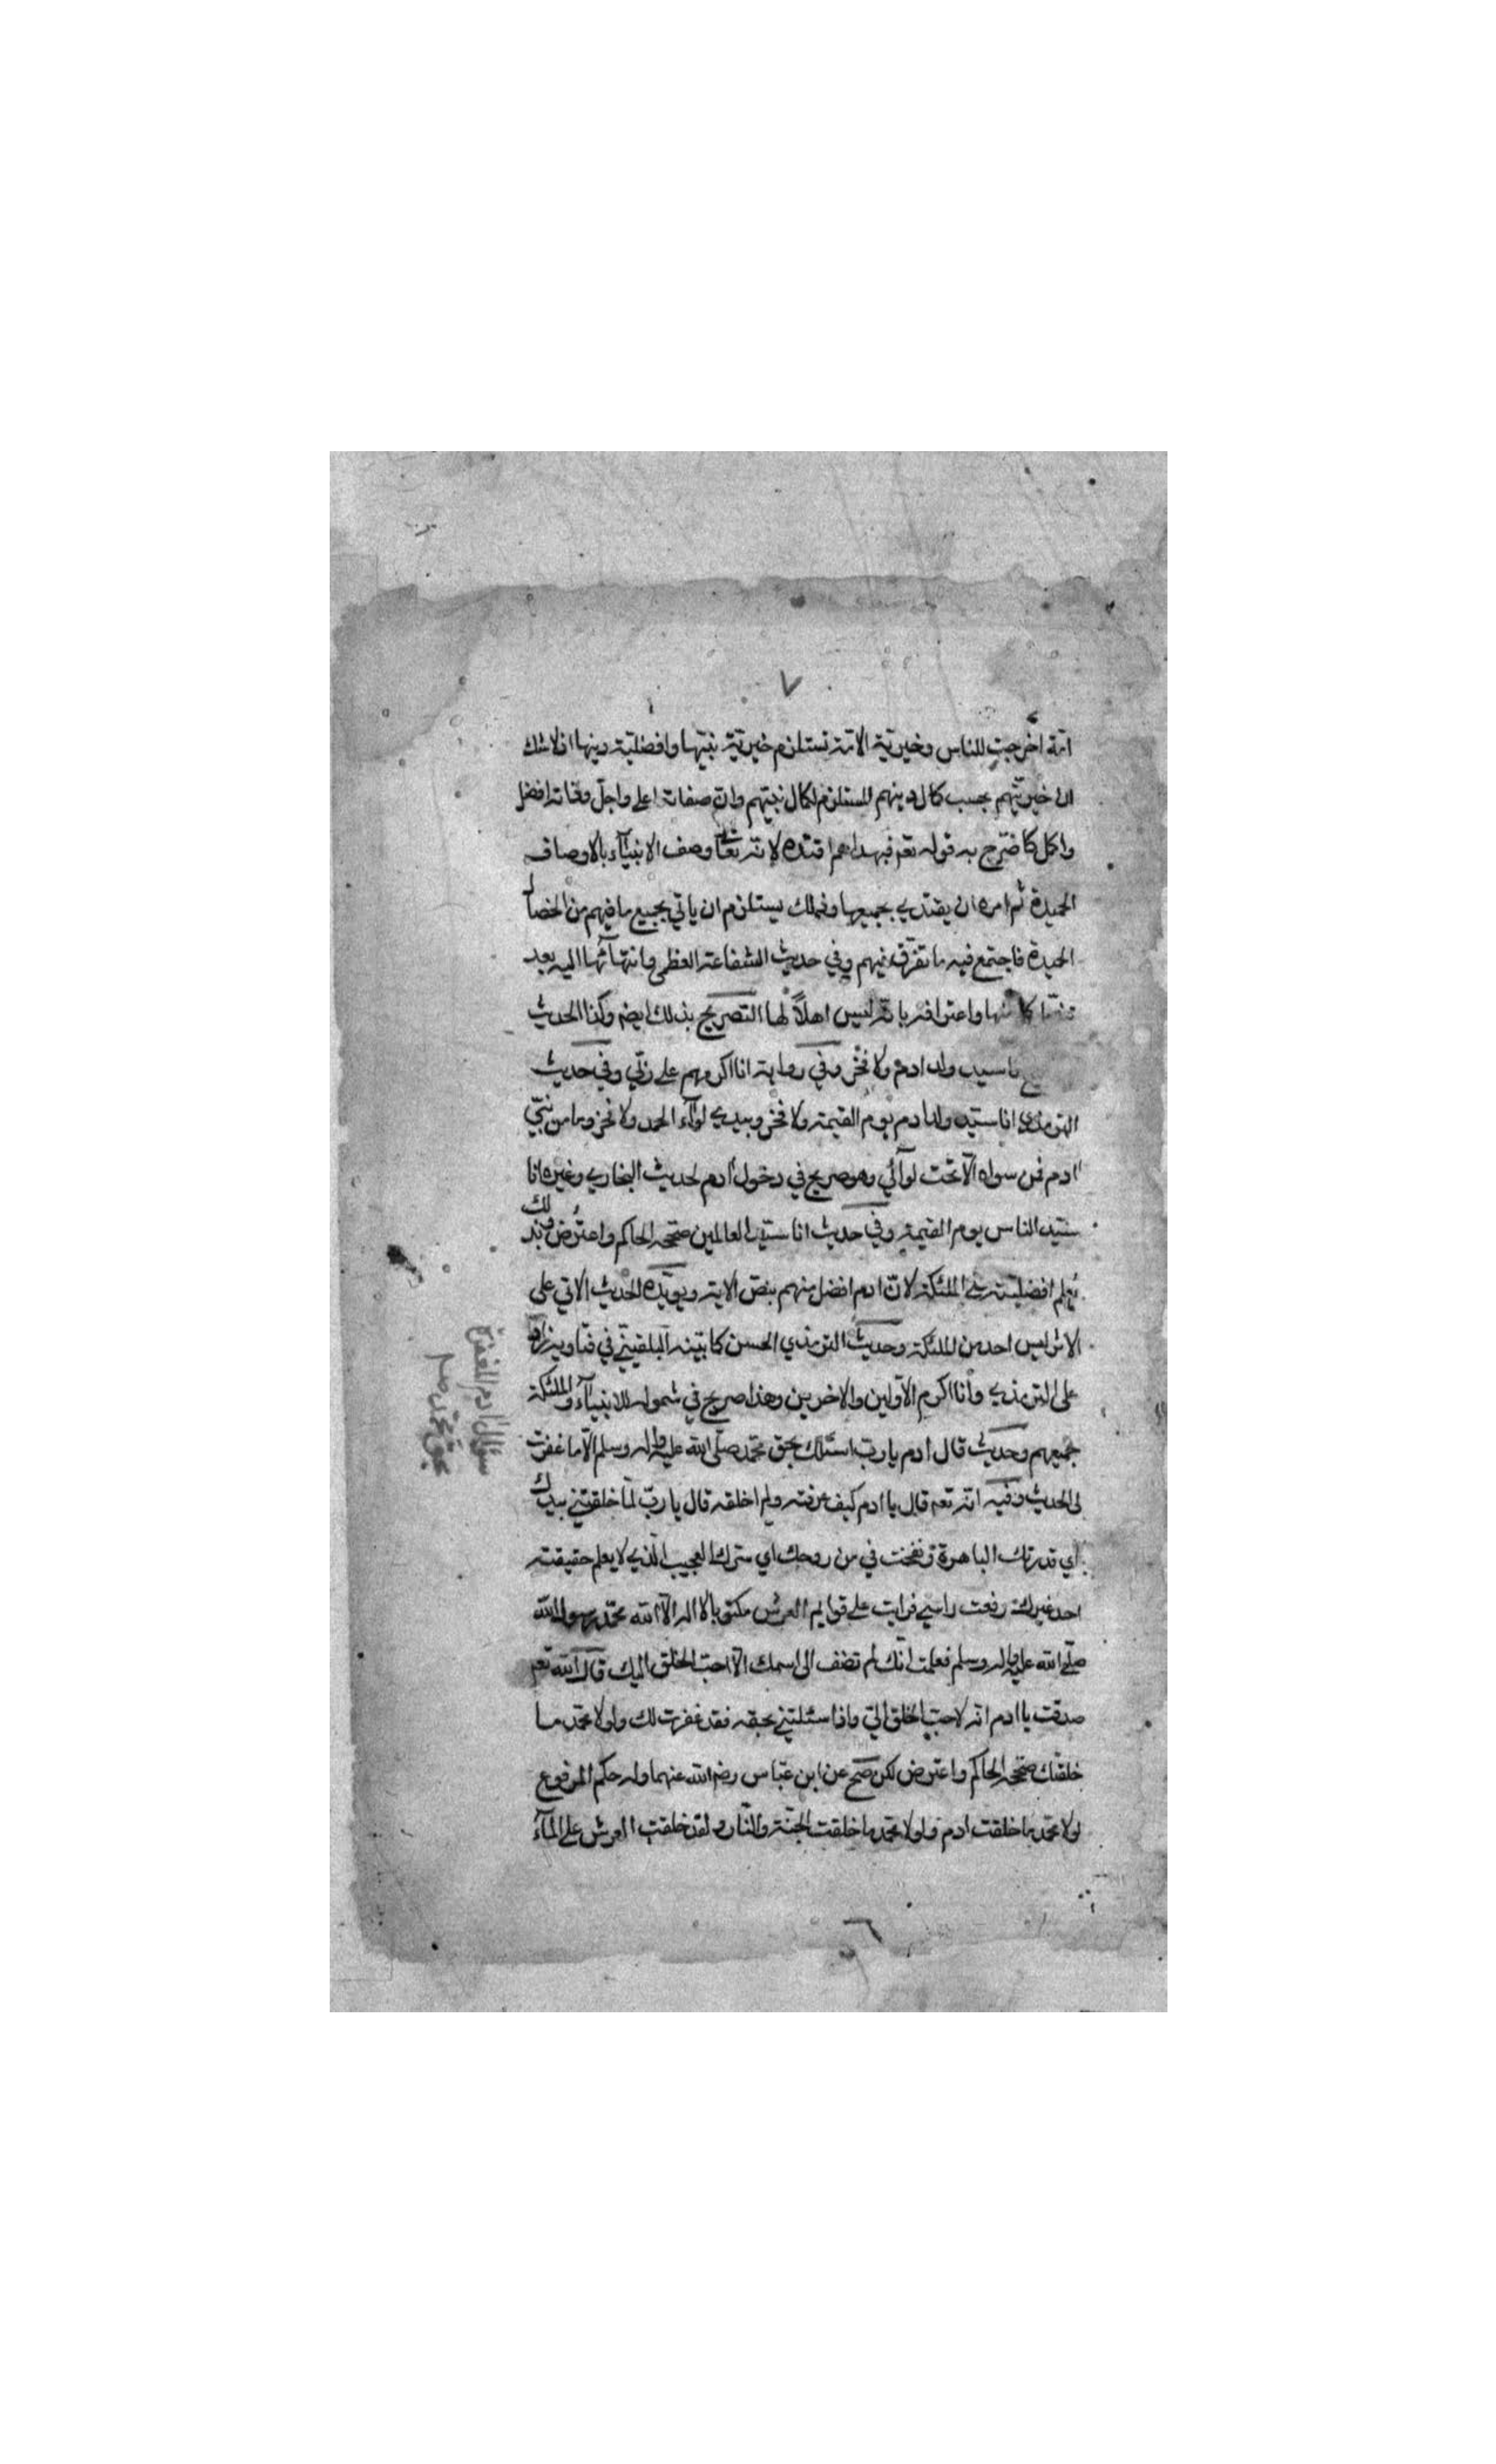 ٧
امة اخرجت للناس وخيرية الامة تستلزم خيرية نبيها وافضلية دينها اذ لا شك
ان خيريتهم بحسب كمال دينهم المستلزم لكمال نبيهم وان صفاته اعلى واجل وذاته افضل
واكمل كما صرح به قوله تعم فبهداهم اقتده لانه تعالى وصف الانبياء بالاوصاف
الحميدة ثم امره ان يقتدي بجميعها وذلك يستلزم ان ياتي بجميع ما فيهم من الخصال
الحميدة فاجتمع فيه ما تفرق فيهم وفي حديث الشفاعة العظمى وانتهائها اليه بعد
منها واعترافه بانه ليس اهلاً لها التصريح بذلك ايضم وكذا الحديث
انا سيد ولد ادم ولا فخر وفي رواية انا اكرمهم على ربي وفي حديث
الترمذي انا سيد ولد ادم يوم القيمة ولا فخر وبيدي لواء الحمد ولا فخر وما من نبي
ادم فمن سواه الا تحت لوائي وهو صريح في دخول ادم لحديث البخاري وغيره انا
سيد الناس يوم القيمة وفي حديث انا سيد العالمين صححه الحاكم واعترض وبذلك
يعلم افضليته على الملئكة لان ادم افضل منهم بنص الاية ويؤيده الحديث الاتي على
الاثر ليس احد من الملئكة وحديث الترمذي الحسن كما بينه البلقيني في فتاويه زاد
على الترمذي وانا اكرم الاولين والاخرين وهذا صريح في شموله للانبياء والملئكة
جميعهم وحديث قال ادم يا رب اسئلك بحق محمد صلى الله عليه واله وسلم الا ما غفرت
لي الحديث وفيه انه تعم قال يا ادم كيف عرفته ولم اخلقه قال يا رب لما خلقتني بيدك
اي قدرتك الباهرة ونفخت في من روحك اي سرك العجيب الذي لا يعلم حقيقته
احد غيرك رفعت راسي فرايت على قوايم العرش مكتوبا لا اله الا الله محمد رسول الله
صلى الله عليه واله وسلم فعلمت انك لم تضف الى اسمك الا احب الخلق اليك قال الله تعم
صدقت يا ادم انه لاحب الخلق الي واذا سئلتني بحقه فقد غفرت لك ولولا محمد ما
خلقتك صححه الحاكم واعترض لكن صح عن ابن عباس رضم الله عنهما وله حكم المرفوع
لولا محمد ما خلقت ادم ولولا محمد ما خلقت الجنة والنار ولقد خلقت العرش على الماء
سؤال ادم المغفرة
بحق محمد صم